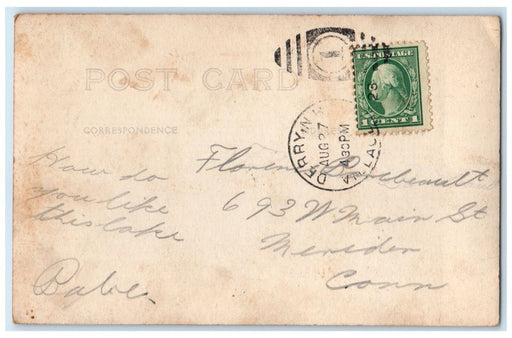 POST CARD
CORRESPONDENCE
U.S. POSTAGE
1 CENT 1
1
DERRY N.H.
AUG 27
430PM
How do
you like
this lake
Babe
693 W Main St
Meriden
Conn